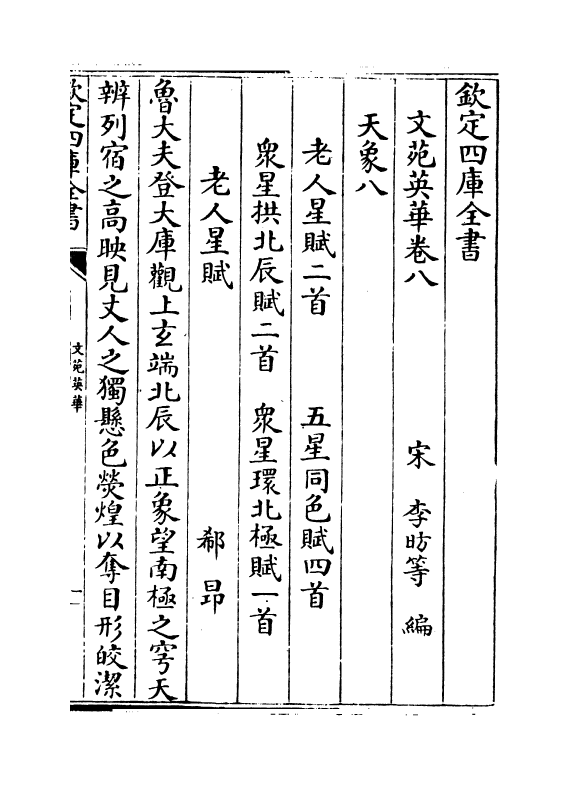 欽定四庫全書
文苑英華卷八
宋 李昉等 編
天象八
老人星賦二首 五星同色賦四首
衆星拱北辰賦二首 衆星環北極賦一首
老人星賦 郗昂
魯大夫登大庫觀上玄端北辰以正象望南極之穹天
辨列宿之高映見丈人之獨懸色熒煌以奪目形皎潔
欽定四庫全書
文苑英華